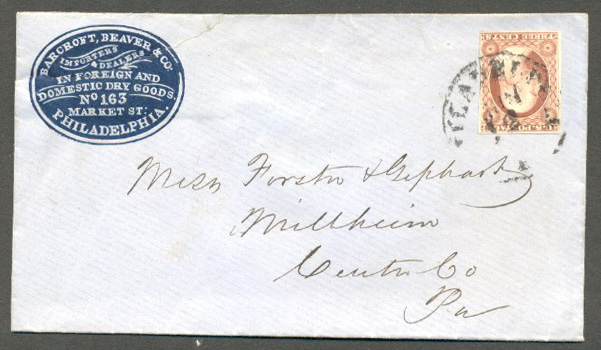 BARCROFT, BEAVER & CO.
IMPORTERS
& DEALERS
IN FOREIGN AND
DOMESTIC DRY GOODS
No 163
MARKET ST.
PHILADELPHIA.
Mess Forster & Gephart
Millheim
Centre Co
Pa